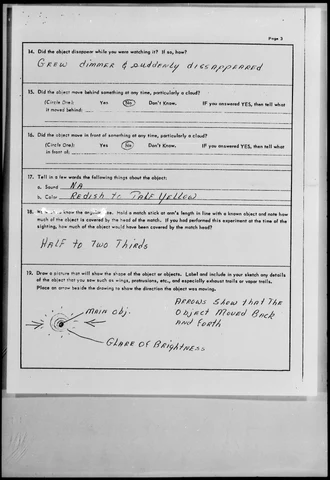 Page 3
14. Did the object disappear while you were watching it? If so, how?
GREW dimmER & SUddENLY dISSAPPEAREd
15. Did the object move behind something at any time, particularly a cloud?
(Circle One): Yes No Don't Know. IF you answered YES, then tell what
it moved behind:
16. Did the object move in front of something at any time, particularly a cloud?
(Circle One): Yes No Don't Know. IF you answered YES, then tell what
in front of:
17. Tell in a few words the following things about the object:
a. Sound NA
b. Color REdISH to PALE YELLOW
18. know the angular size. Hold a match stick at arm's length in line with a known object and note how
much of the object is covered by the head of the match. If you had performed this experiment at the time of the
sighting, how much of the object would have been covered by the match head?
HALF to Two THIRds
19. Draw a picture that will show the shape of the object or objects. Label and include in your sketch any details
of the object that you saw such as wings, protrusions, etc., and especially exhaust trails or vapor trails.
Place an arrow beside the drawing to show the direction the object was moving.
MAIN Obj.
GLARE of BRIGHTNESS
ARROWS SHOW tHAT THE
Object MOVEd BACK
ANd FORTH